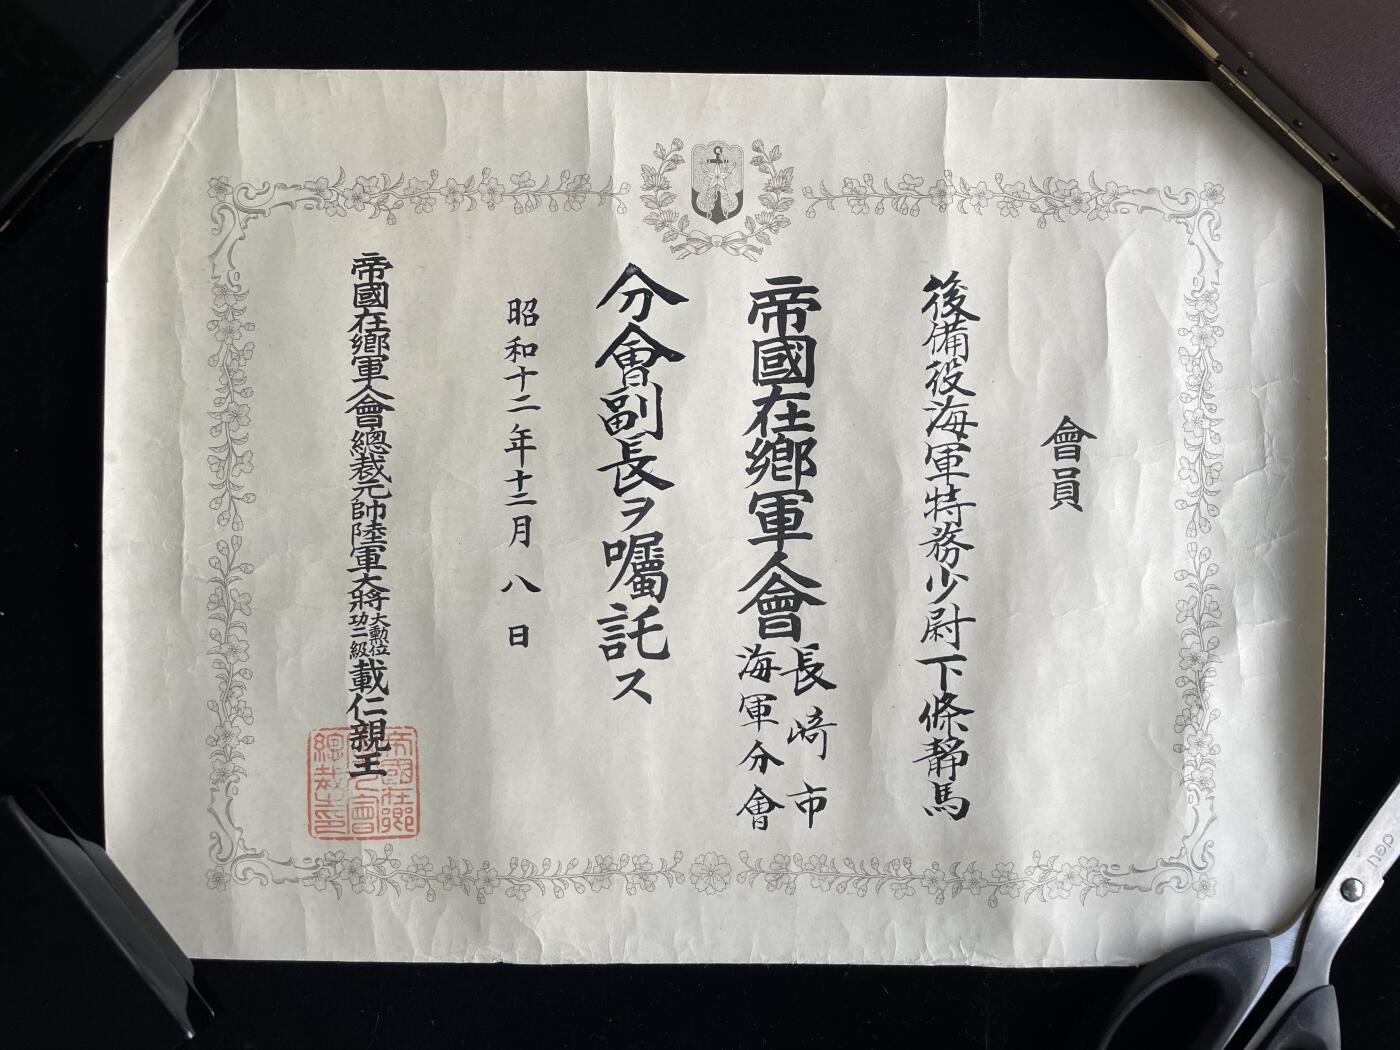 會員
後備役海軍特務少尉下條靜馬
帝國在鄉軍人會長崎市海軍分會
分會副長ヲ囑託ス
昭和十二年十二月八日
帝國在鄉軍人會總裁元帥陸軍大將大勳位功二級載仁親王
帝國在鄉軍人會總裁之印
deli